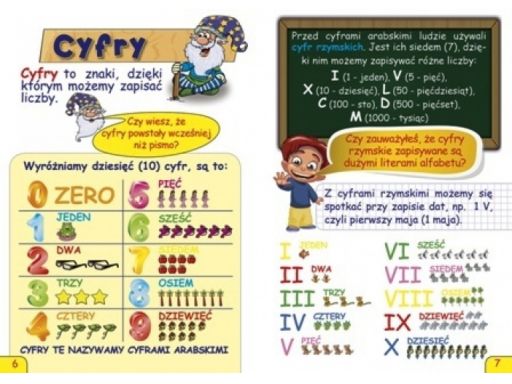 Cyfry
Cyfry to znaki, dzięki
którym możemy zapisać
liczby.
Czy wiesz, że
cyfry powstały wcześniej
niż pismo?
Wyróżniamy dziesięć (10) cyfr, są to:
0 ZERO
1 JEDEN
2 DWA
3 TRZY
4 CZTERY
5 PIĘĆ
6 SZEŚĆ
7 SIEDEM
8 OSIEM
9 DZIEWIĘĆ
CYFRY TE NAZYWAMY CYFRAMI ARABSKIMI
6
Przed cyframi arabskimi ludzie używali
cyfr rzymskich. Jest ich siedem (7), dzię-
ki nim możemy zapisywać różne liczby:
I (1 - jeden), V (5 - pięć),
X (10 - dziesięć), L (50 - pięćdziesiąt),
C (100 - sto), D (500 - pięćset),
M (1000 - tysiąc)
Czy zauważyłeś, że cyfry
rzymskie zapisywane są
dużymi literami alfabetu?
Z cyframi rzymskimi możemy się
spotkać przy zapisie dat, np. 1 V,
czyli pierwszy maja (1 maja).
I JEDEN
II DWA
III TRZY
IV CZTERY
V PIĘĆ
VI SZEŚĆ
VII SIEDEM
VIII OSIEM
IX DZIEWIĘĆ
X DZIESIĘĆ
7